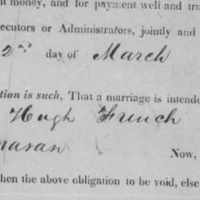 t money, and for payment well and tru
ecutors or Administrators, jointly and
2nd day of March
tion is such, That a marriage is intende
Hugh French
Now,
hen the above obligation to be void, else